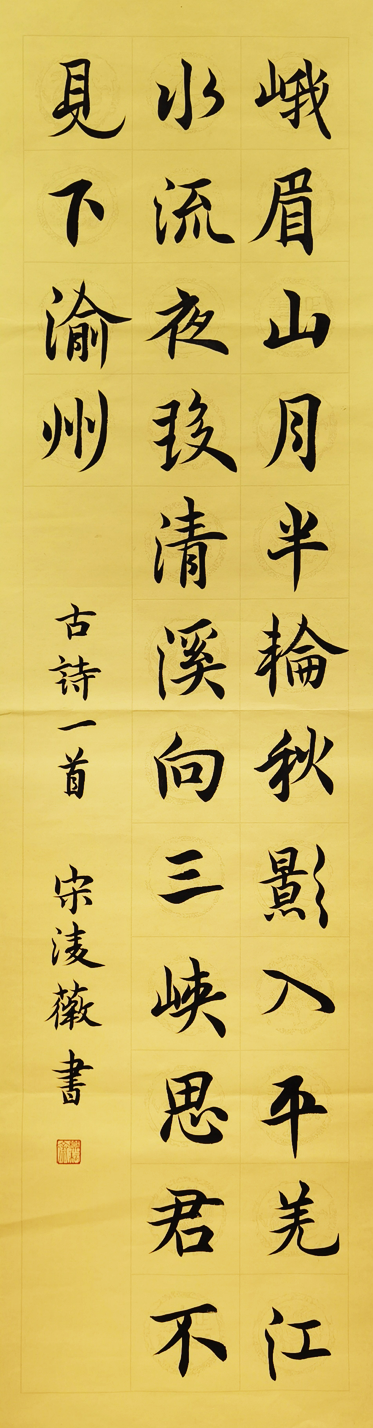 峨眉山月半輪秋影入平羌江
水流夜發清溪向三峡思君不
見下渝州
古詩一首 宋淩薇書